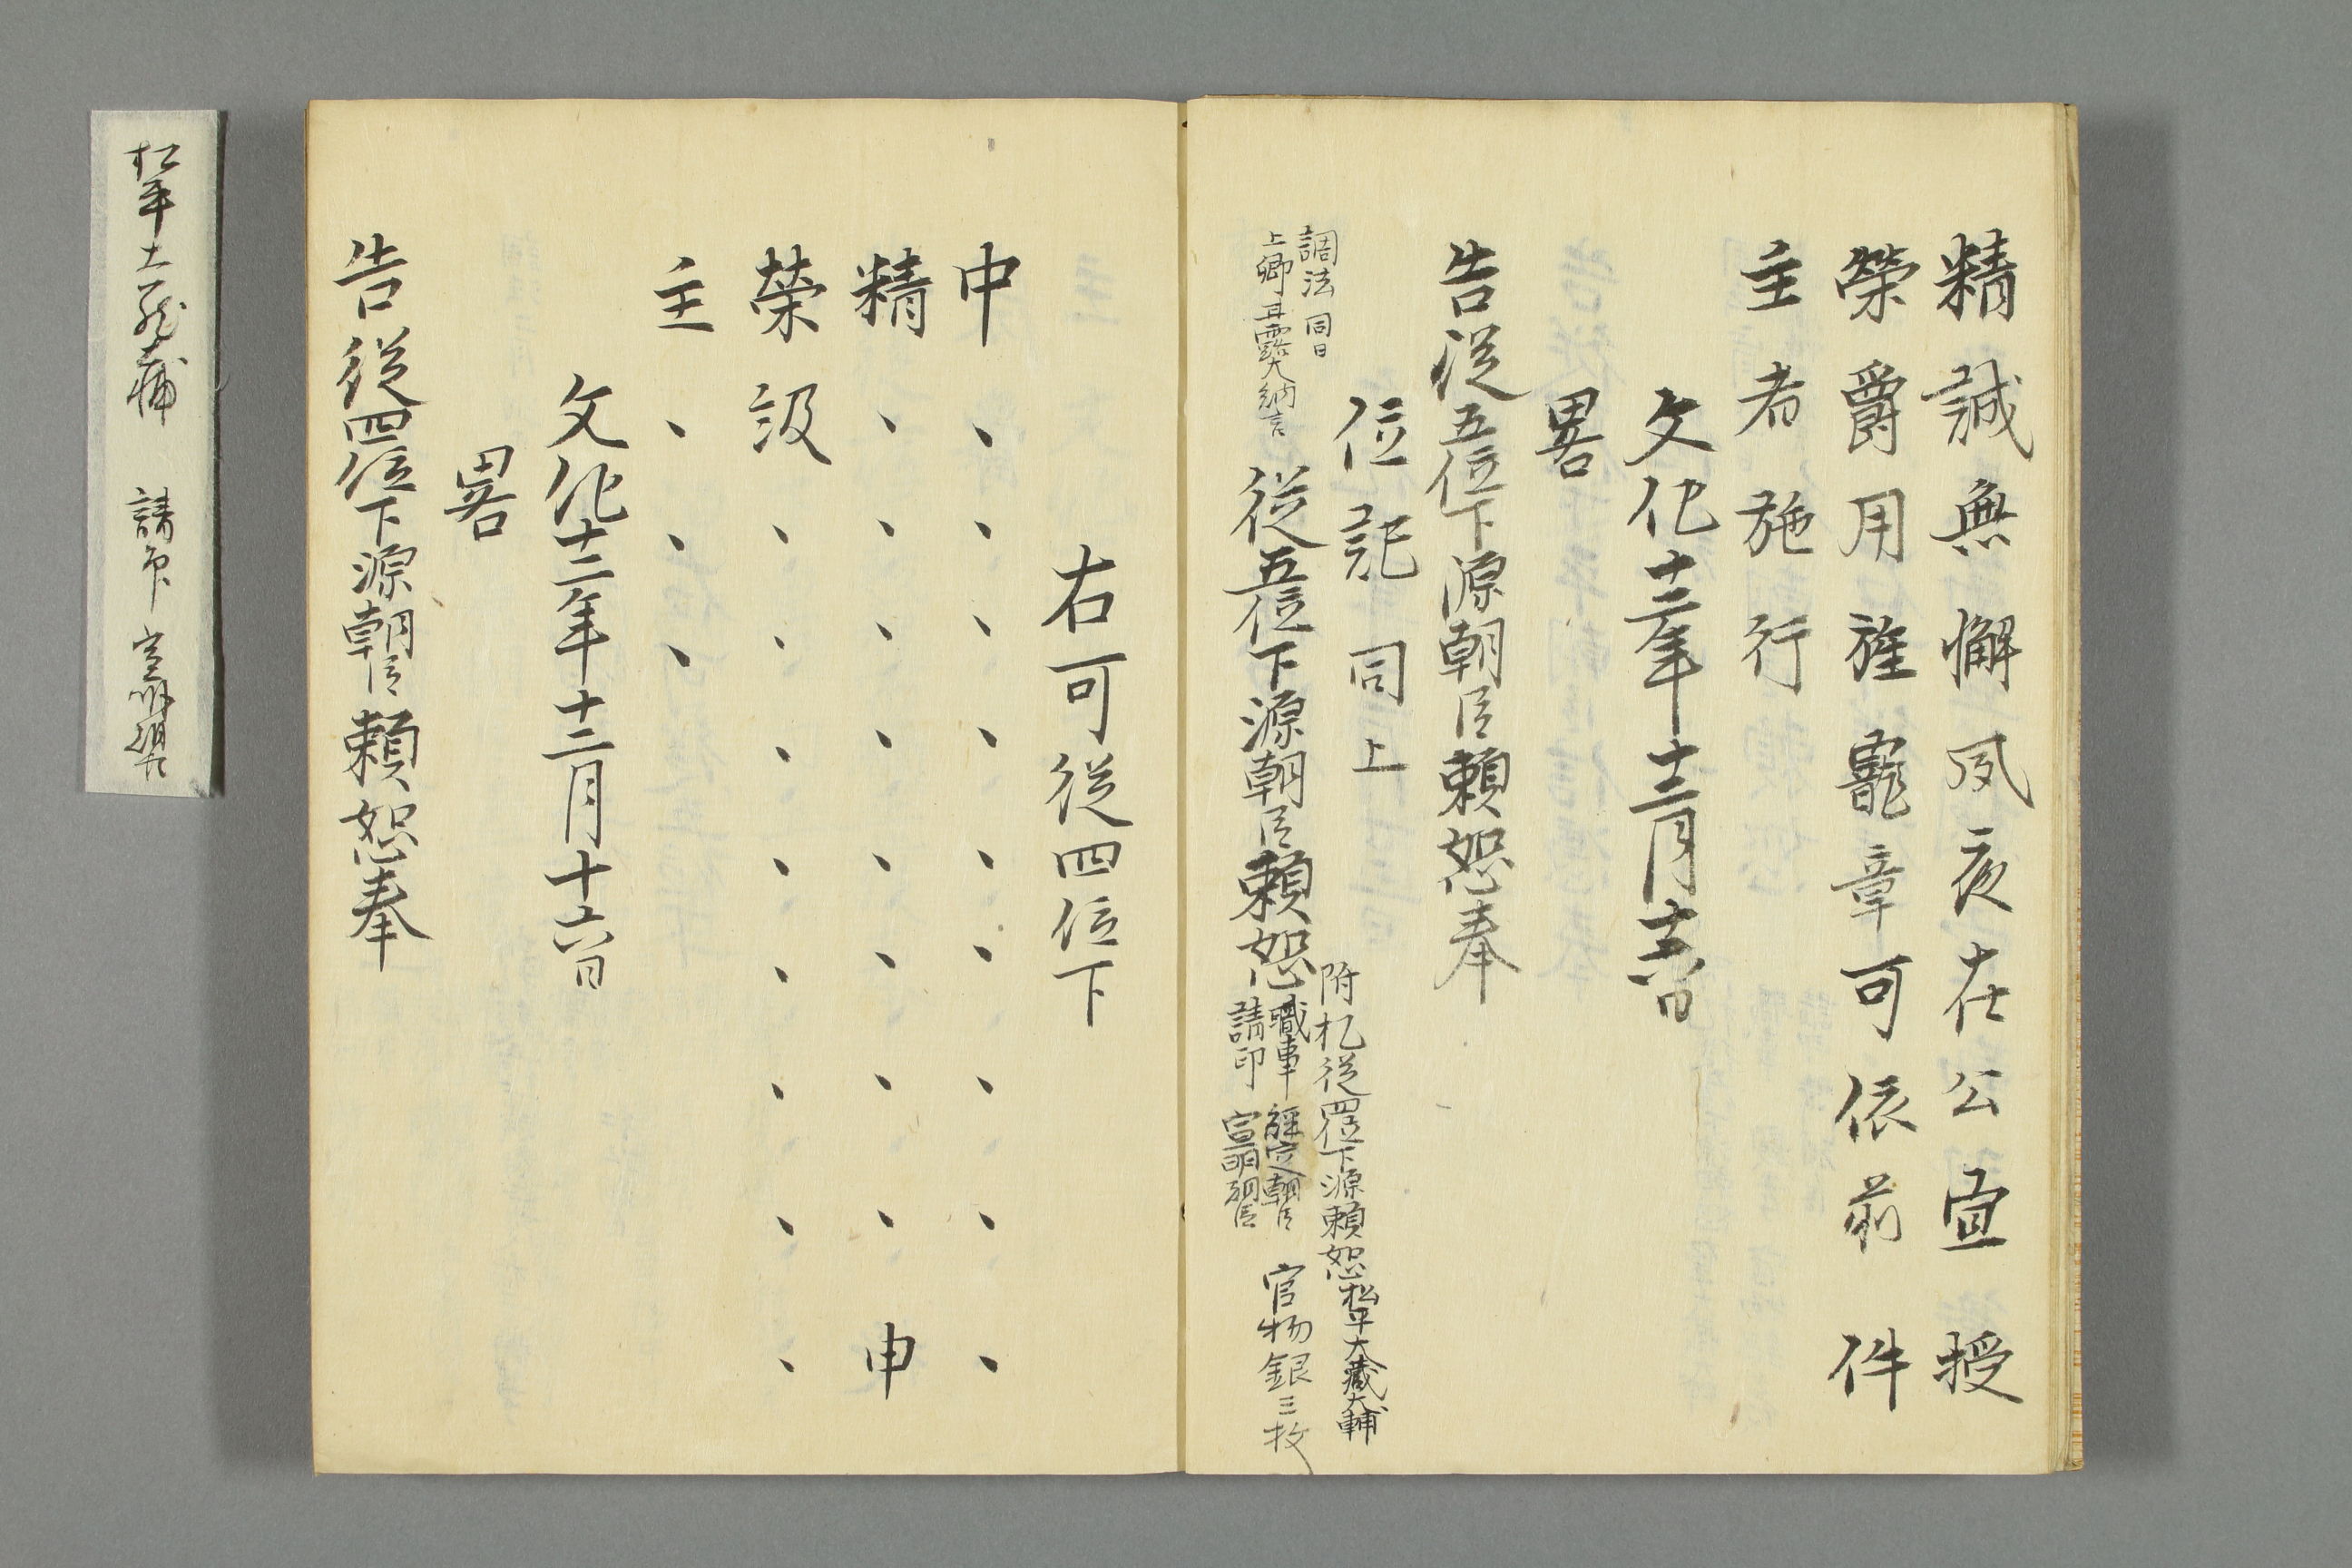 精誠無懈夙夜在公宜授
榮爵用旌寵章可依前件
主者施行
文化十二年十二月十六日
畧
告從五位下源朝臣頼恕奉
位記同上
調法同日
上卿甘露大納言
附札從四位下源頼恕松平大蔵大輔
從五位下源朝臣頼恕
職事
請印 宣明朝臣
官物銀三枚
右可從四位下
中、、、、、、、、
精、、、、、、、、申
榮級、、、、、、、、
主、、、
文化十二年十二月十六日
畧
告從四位下源朝臣頼恕奉
請印